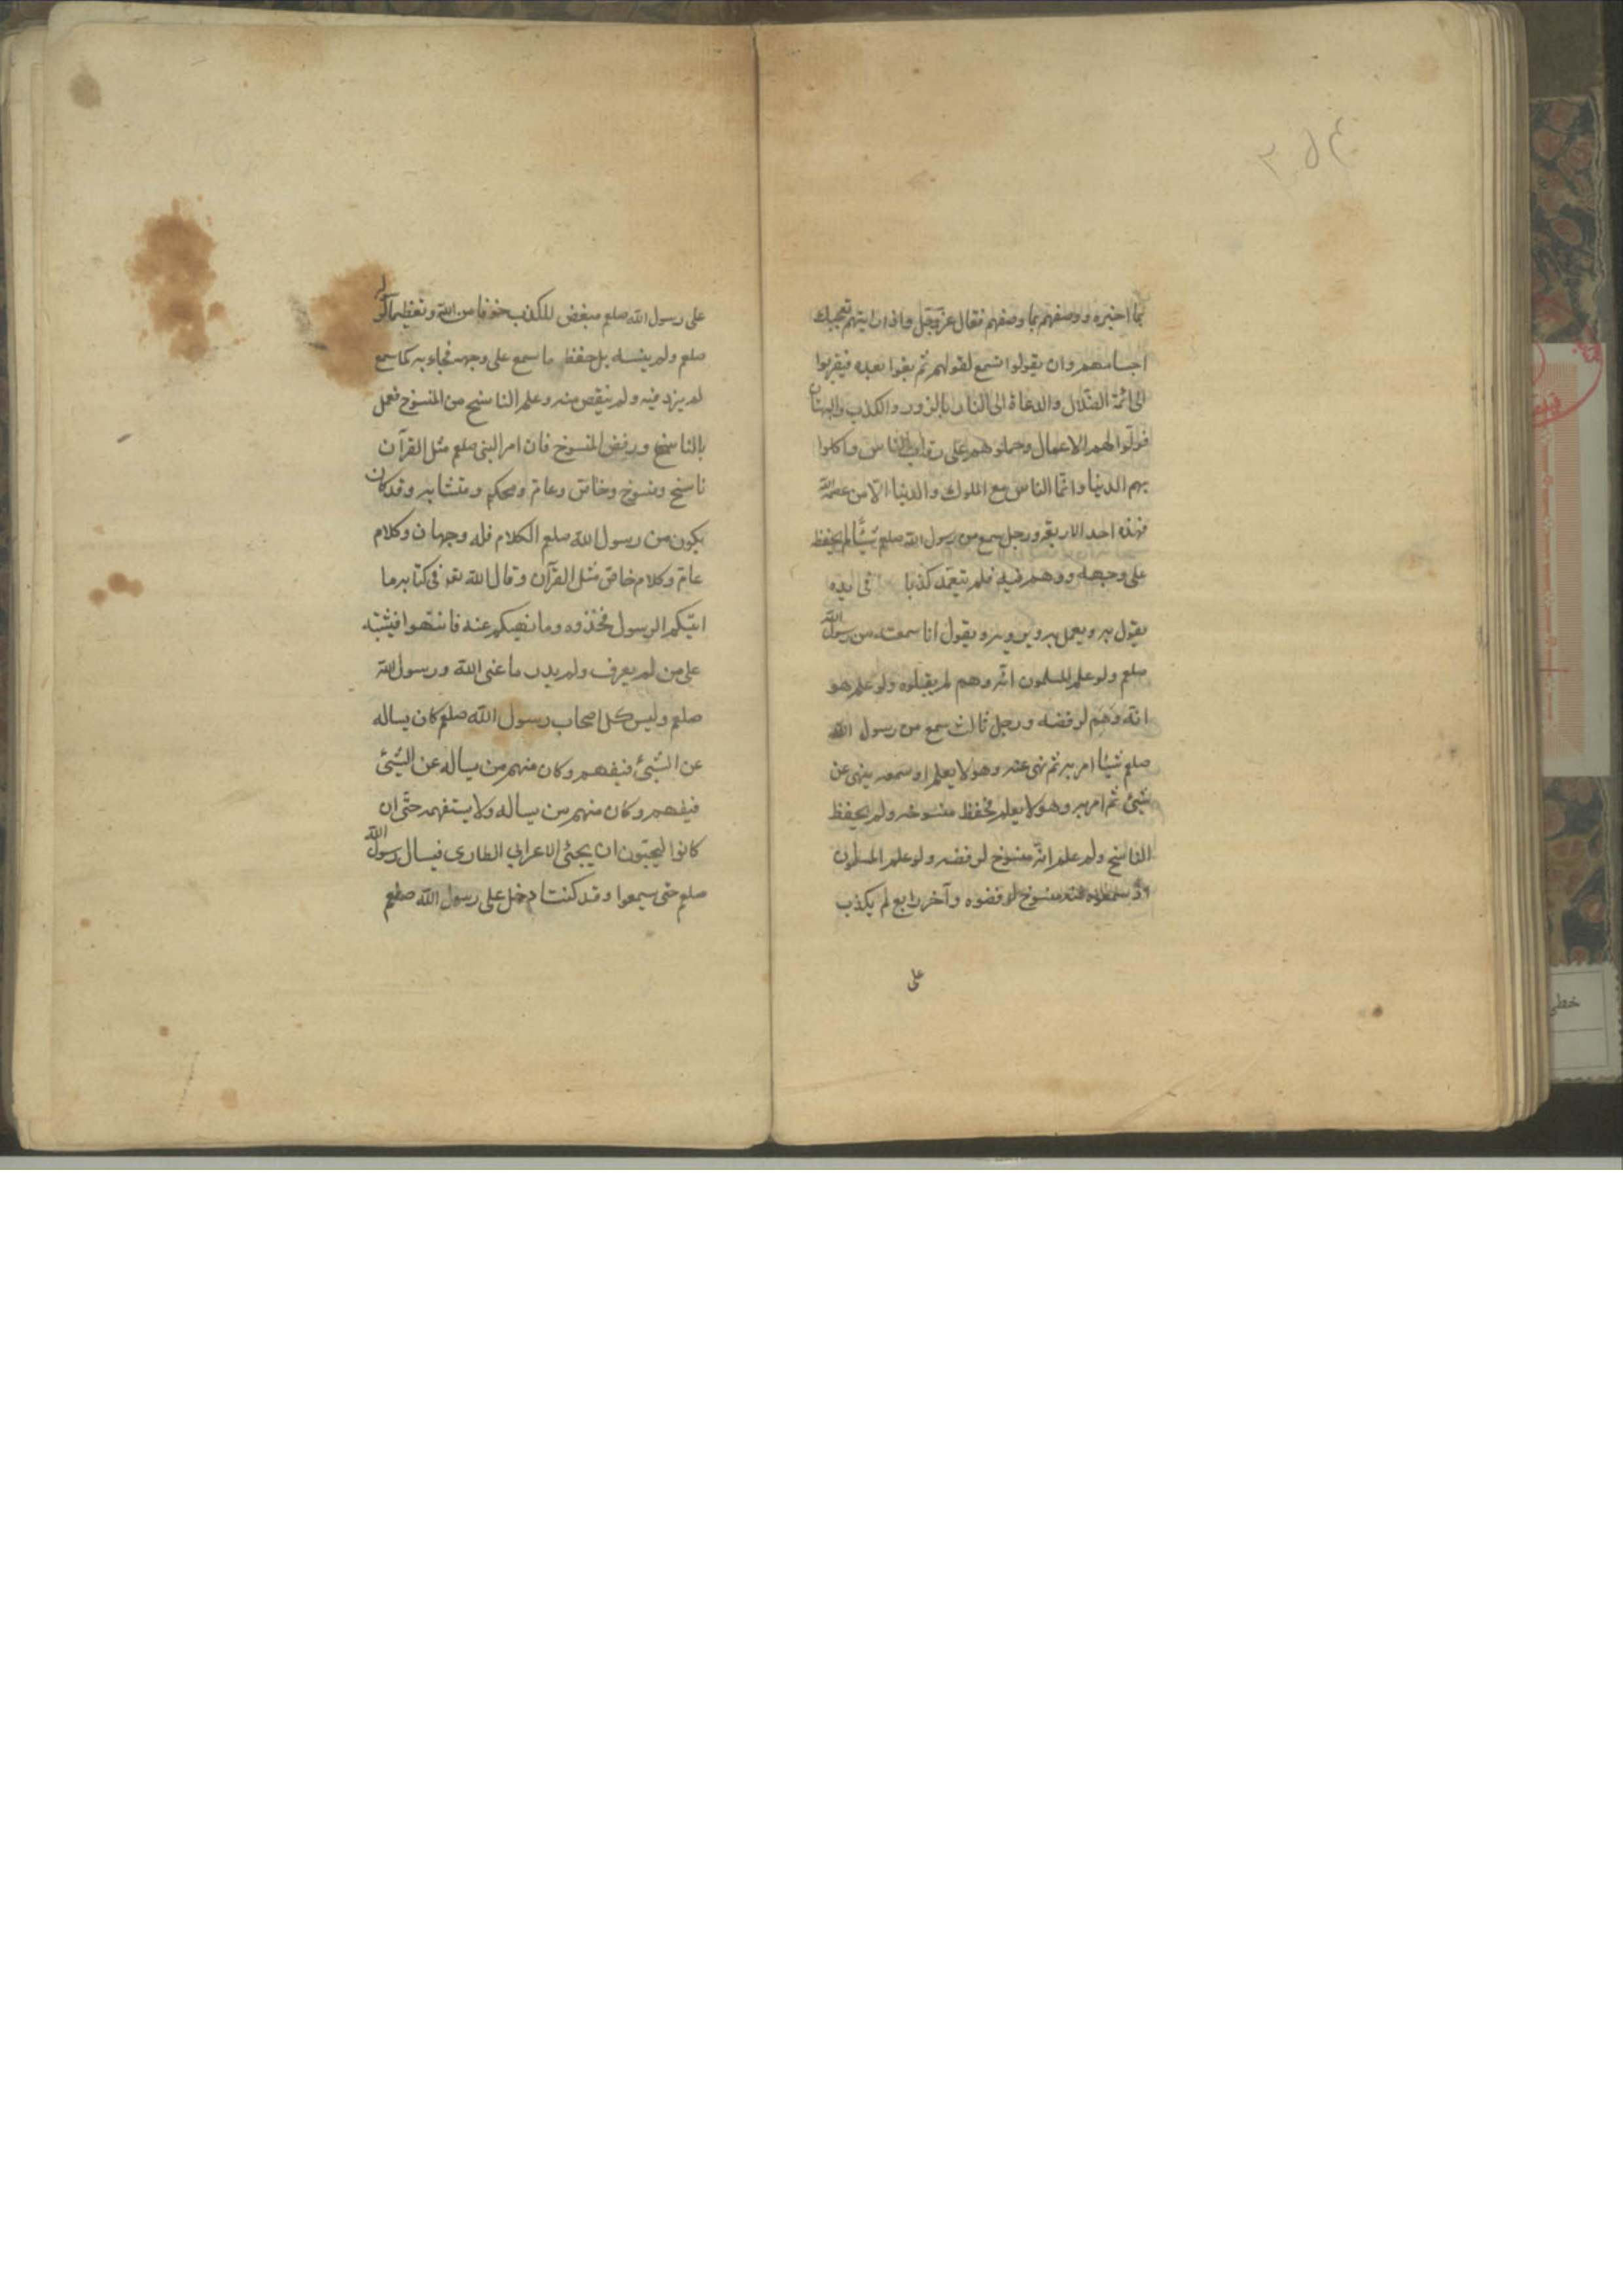 بما اخبره ووصفهم بما وصفهم فقال عزّوجلّ واذا رايتهم تعجبك
اجسامهم وان يقولوا تسمع لقولهم ثم بقوا بعده فيقربوا
الى ائمة الضّلال والدعاة الى النار بالزور والكذب والبهتان
فولّوا لهم الاعمال وحملوهم على رقاب الناس واكلوا
بهم الدنيا وانّما الناس مع الملوك والدنيا الّا من عصم الله
فهذه احد الاربعة ورجل سمع من رسول الله صلعم شيئًا لم يحفظ
على وجهه ووهم فيه فلم يتعمّد كذبا فى يده
يقول به ويعمل به ويرويه ويقول انا سمعته من رسول الله
صلعم ولو علم المسلمون انّه وهم لم يقبلوه ولو علم هو
انّه وهم لرفضه ورجل ثالث سمع من رسول الله
صلعم شيئا امر به ثم نهى عنه وهو لا يعلم او سمعه ينهى عن
شئ ثم امر به وهو لا يعلم فحفظ منسوخه ولم يحفظ
الناسخ ولم علم انّه منسوخ لرفضه ولو علم المسلمون
اذ سمعوه منه منسوخ لرفضوه وآخر رابع لم يكذب
على
على رسول الله صلعم مبغض للكذب خوفا من الله وتعظيما لرسول
صلعم ولم ينسه بل حفظ ما سمع على وجهه فجاء به كما سمع
لم يزد فيه ولم ينقص منه وعلم الناسخ من المنسوخ فعمل
بالناسخ ورفض المنسوخ فان امر النبى صلعم مثل القرآن
ناسخ ومنسوخ وخاصّ وعامّ ومحكم ومتشابه وقد كان
يكون من رسول الله صلعم الكلام فله وجهان وكلام
عامّ وكلام خاصّ مثل القرآن وقال الله تعه فى كتابه ما
اتيكم الرسول فخذوه وما نهيكم عنه فانتهوا فيشتبه
على من لم يعرف ولم يدر ما عنى الله ورسول الله
صلعم وليس كل اصحاب رسول الله صلعم كان يساله
عن الشئ فيفهم وكان منهم من يساله عن الشئ
فيفهم وكان منهم من يساله ولا يستفهمه حتّى ان
كانوا ليحبّون ان يجئ الاعرابي الطارى فيسال رسول الله
صلعم حتى سيمعوا وقد كنت ادخل على رسول الله صلعم